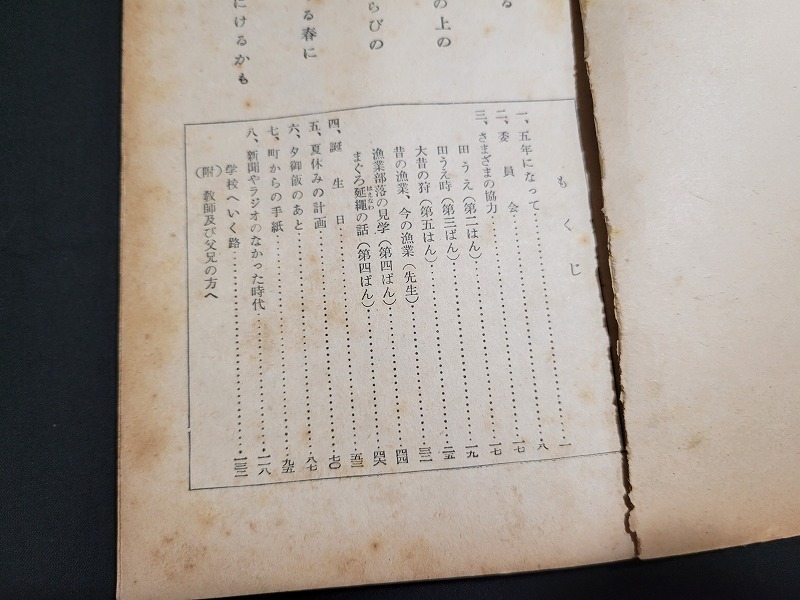 る
の上の
らびの
る春に
にけるかも
もくじ
一、五年になって……一
二、委員会……八
三、さまざまの協力……一七
田うえ（第二はん）……一七
田うえ時（第三ぱん）……一九
大昔の狩（第五はん）……二五
昔の漁業、今の漁業（先生）……三二
漁業部落の見学（第四ぱん）……四四
まぐろ延縄の話（第四ぱん）……四六
はえなわ
四、誕生日……五三
五、夏休みの計画……七〇
六、夕御飯のあと……八七
七、町からの手紙……九五
八、新聞やラジオのなかった時代……一一八
学校へいく路……一三二
（附）教師及び父兄の方へ